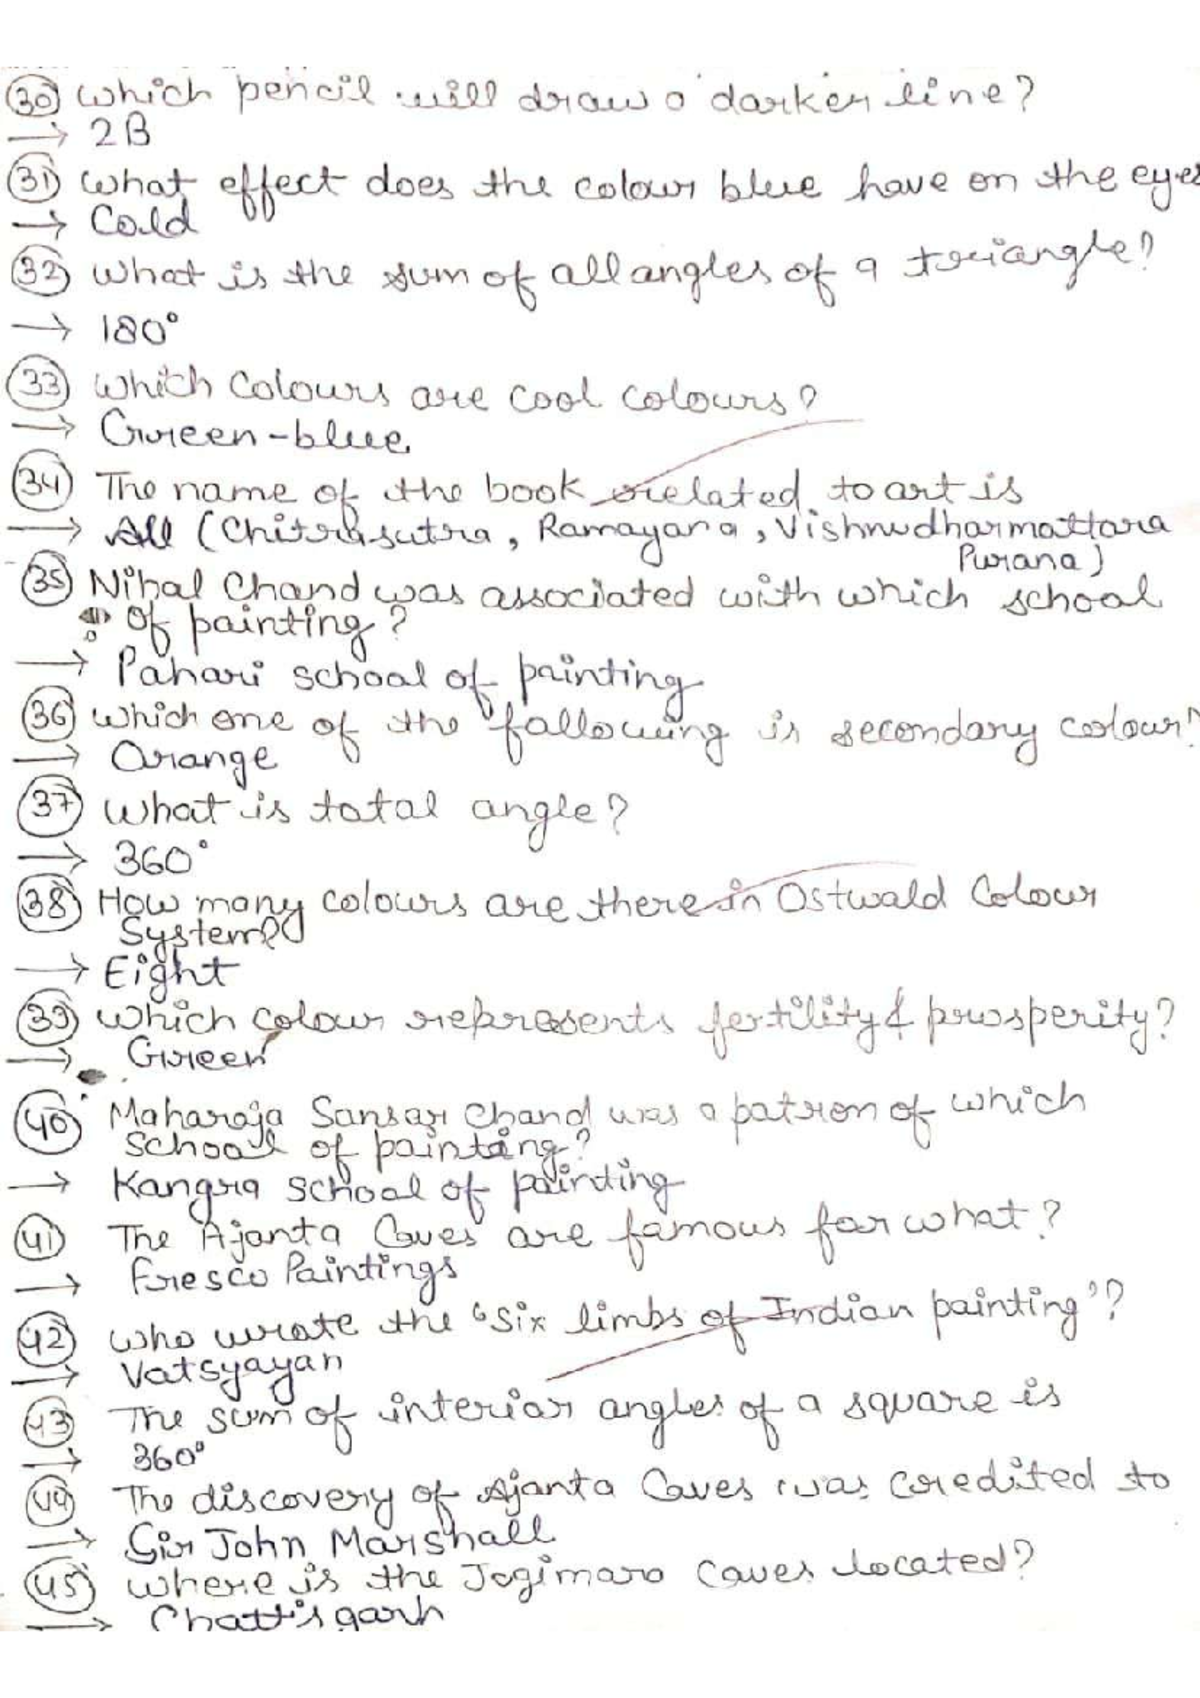 30 Which pencil will draw a darker line?
→ 2B
31 What effect does the colour blue have on the eyes
→ Cold
32 What is the sum of all angles of a triangle?
→ 180°
33 Which Colours are cool colours?
→ Green-blue.
34 The name of the book related to art is
→ All (Chitrasutra, Ramayana, Vishnudharmattara
Purana)
35 Nihal Chand was associated with which school
of painting?
→ Pahari school of painting
36 Which one of the following is secondary colour?
→ Orange
37 What is total angle?
→ 360°
38 How many colours are there in Ostwald Colour
System?
→ Eight
39 Which colour represents fertility & prosperity?
→ Green
40 Maharaja Sansar Chand was a patron of which
School of painting?
→ Kangra school of painting
41 The Ajanta Caves are famous for what?
→ Fresco Paintings
42 Who wrote the 'Six limbs of Indian painting'?
→ Vatsyayan
43 The sum of interior angles of a square is
→ 360°
44 The discovery of Ajanta Caves was credited to
→ Sir John Marshall
45 Where is the Jogimara Caves located?
→ Chattisgarh